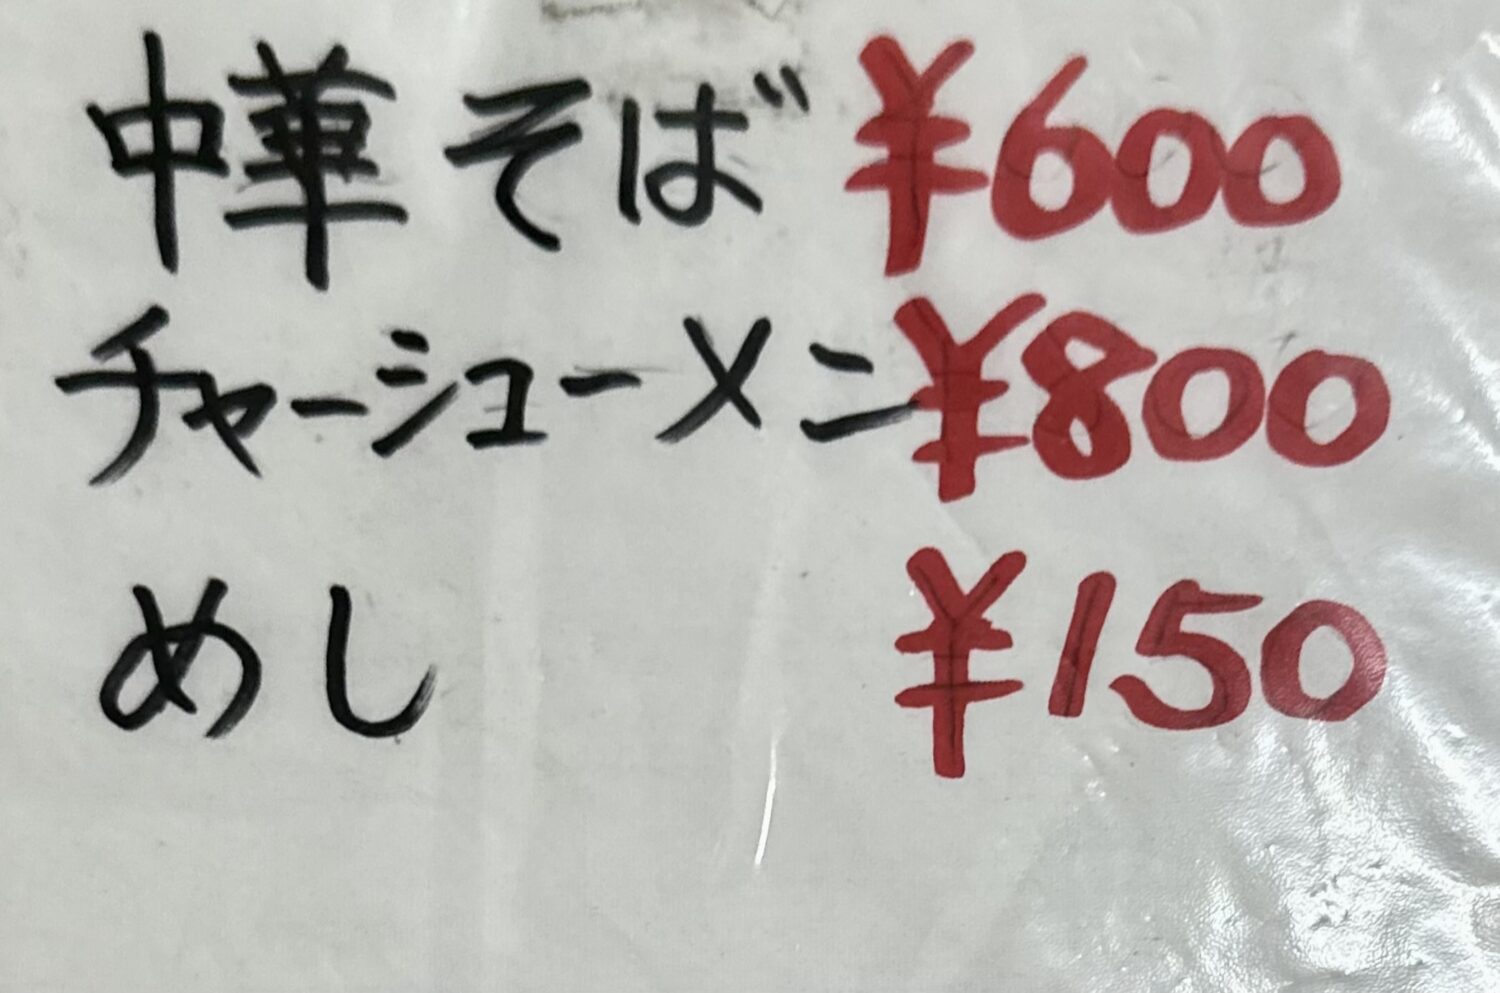 中華そば ¥600
チャーシューメン ¥800
めし ¥150